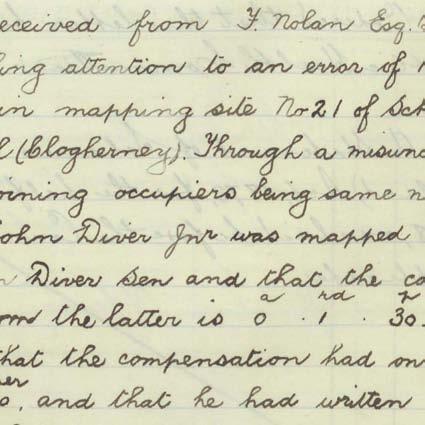 eceived from F. Nolan Esq.
ling attention to an error of
in mapping site No 21 of Sch
l (Clogherney). Through a misun
oining occupiers being same n
John Diver Jnr was mapped
n Diver Sen and that the co
a rd
the latter is 0 . 1 . 30.
that the compensation had on
o, and that he had written